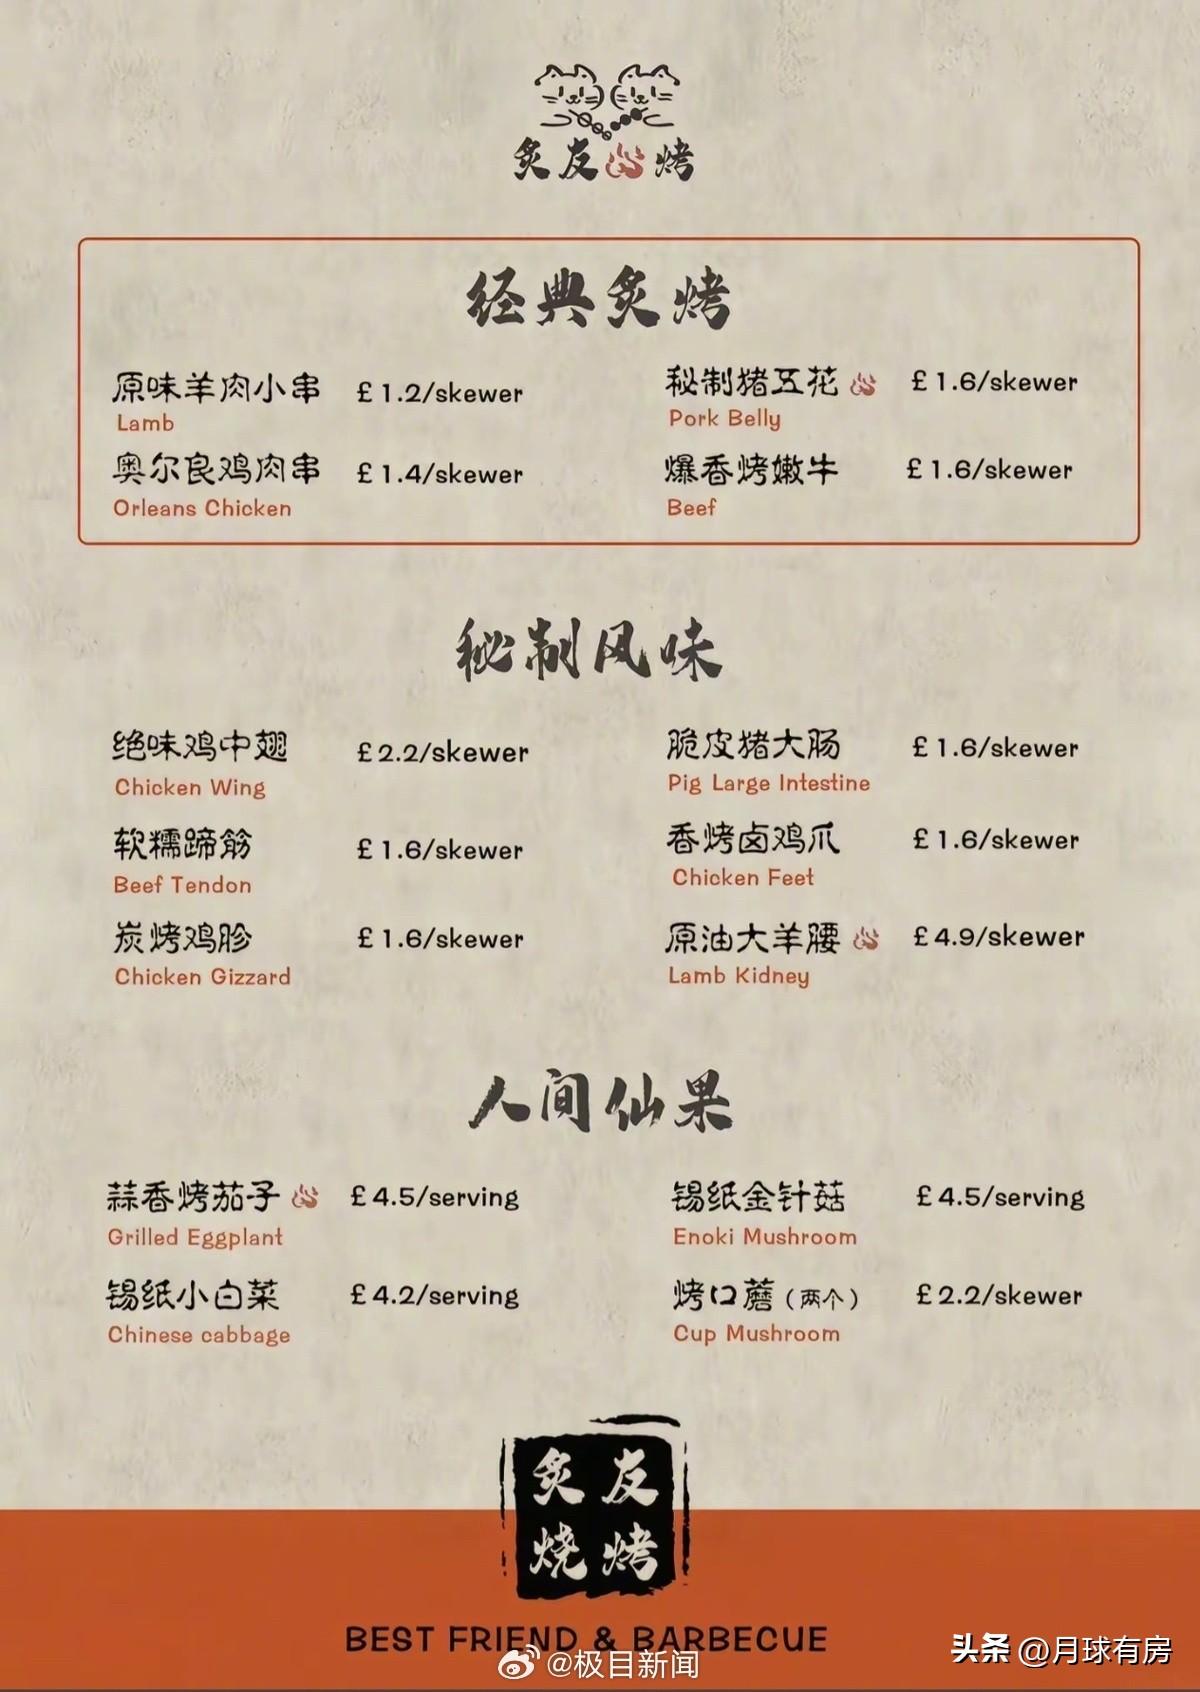 炙友烤
经典炙烤
原味羊肉小串 £1.2/skewer
Lamb
秘制猪五花 £1.6/skewer
Pork Belly
奥尔良鸡肉串 £1.4/skewer
Orleans Chicken
爆香烤嫩牛 £1.6/skewer
Beef
秘制风味
绝味鸡中翅 £2.2/skewer
Chicken Wing
脆皮猪大肠 £1.6/skewer
Pig Large Intestine
软糯蹄筋 £1.6/skewer
Beef Tendon
香烤卤鸡爪 £1.6/skewer
Chicken Feet
炭烤鸡胗 £1.6/skewer
Chicken Gizzard
原油大羊腰 £4.9/skewer
Lamb Kidney
人间仙果
蒜香烤茄子 £4.5/serving
Grilled Eggplant
锡纸金针菇 £4.5/serving
Enoki Mushroom
锡纸小白菜 £4.2/serving
Chinese cabbage
烤口蘑（两个） £2.2/skewer
Cup Mushroom
炙友
烧烤
BEST FRIEND & BARBECUE
@极目新闻
头条 @月球有房